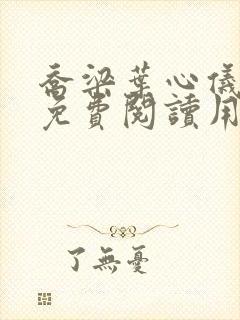 喬梁葉心儀
免費閱讀用
了無憂